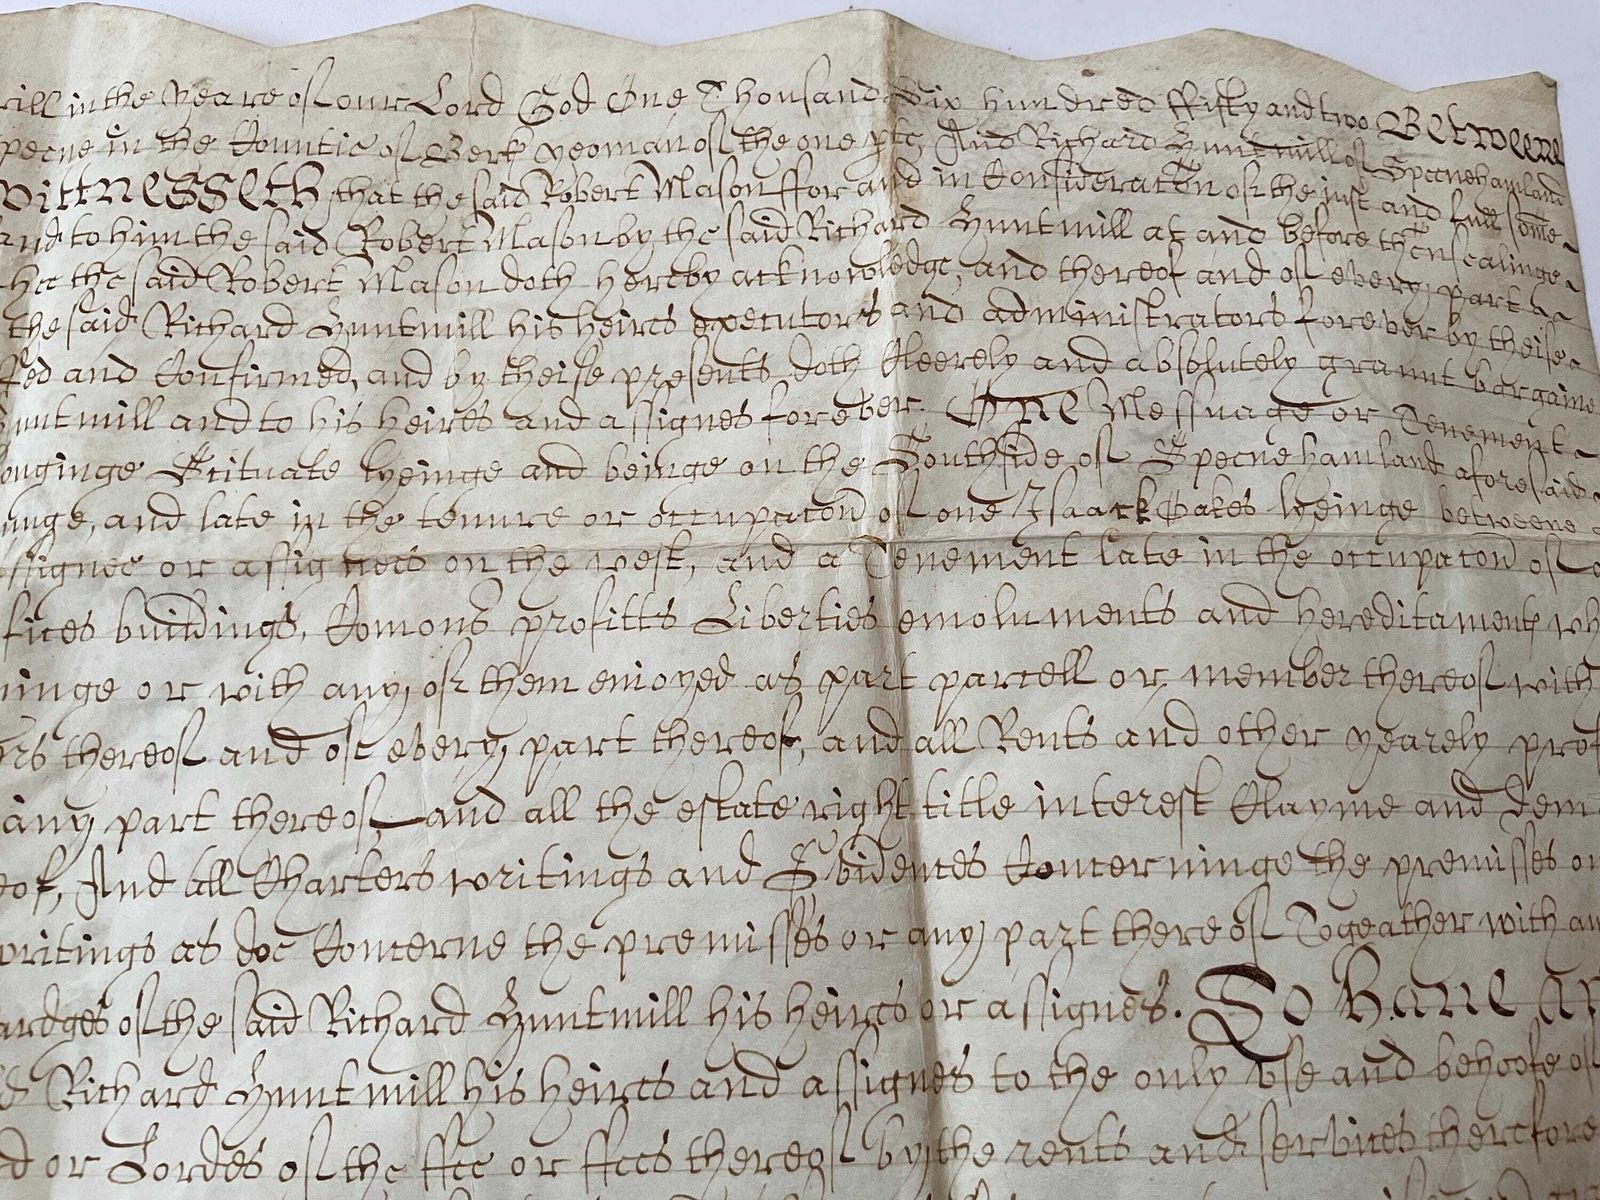 rill in the Yeare of our Lord God One Thousand Six hundred ffifty and two Betweene
peene in the Countie of Berk yeoman of the one pte, And Richard Huntmill of Speenehamland
Wittnesseth that the said Robert Mason ffor and in Consideracon of the just and full some
and to him the said Robert Mason by the said Richard Huntmill at and before thensealinge
hee the said Robert Mason doth hereby acknowledge, and thereof and of every part
the said Richard Huntmill his heires executors and administrators forever by theise
fed and Confirmed, and by theise presents doth Cleerely and absolutely graunt bargaine
Huntmill and to his heires and assignes forever. One Messuage or Tenement
onginge Scituate lyeinge and beinge on the Southside of Speenehamland aforesaid
inge, and late in the tenure or occupacon of one Isaack Oakes lyeinge betweene
ssignee or assignees on the west, and a Tenement late in the occupacon of
fices buildings, Comons profitts Liberties emoluments and hereditaments wh
inge or with any of them enioyed as part parcell or member thereof with
ors thereof and of every part thereof, and all Rents and other yearely prof
any part thereof, and all the estate right title interest Clayme and dem
eof, And all Charters writings and Evidences Concerninge the premisses or
writings as doe Concerne the premisses or any part thereof Togeather with an
ardges of the said Richard Huntmill his heires or assignes. To Have An
d Richard Huntmill his heires and assignes to the only vse and behoofe of
d or Lordes of the ffee or ffees thereof by the rents and services therefore